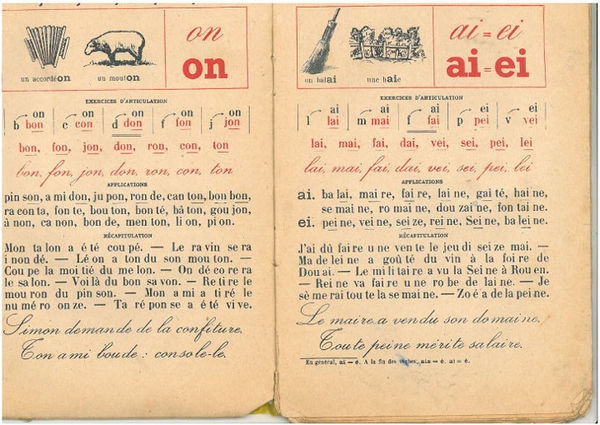 on
on
un accordéon
un mouton
EXERCICES D'ARTICULATION
on on on on on
b bon c con d don f fon j jon
bon, fon, jon, don, ron, con, ton
bon, fon, jon, don, ron, con, ton
APPLICATIONS
pin son, a mi don, ju pon, ron de, can ton, bon bon,
ra con ta, fon te, bou ton, bon té, bâ ton, gou jon,
â non, ca non, bon de, men ton, li on, pi on.
RÉCAPITULATION
Mon ta lon a é té cou pé. — Le ra vin se ra
i non dé. — Lé on a ton du son mou ton. —
Cou pe la moi tié du me lon. — On dé co re ra
le sa lon. — Voi là du bon sa von. — Re ti re le
mou ron du pin son. — Mon a mi a ti ré le
nu mé ro on ze. — Ta ré pon se a é té vi ve.
Simon demande de la confiture.
Ton ami boude : console-le.
ai = ei
ai = ei
un balai
une haie
EXERCICES D'ARTICULATION
ai ai ai ei ei
l lai m mai f fai p pei v vei
lai, mai, fai, dai, vei, sei, pei, lei
lai, mai, fai, dai, vei, sei, pei, lei
APPLICATIONS
ai. ba lai, mai re, fai re, lai ne, gai té, hai ne,
se mai ne, ro mai ne, dou zai ne, fon tai ne.
ei. pei ne, vei ne, sei ze, rei ne, Sei ne, ba lei ne.
RÉCAPITULATION
J'ai dû fai re u ne ven te le jeu di sei ze mai. —
Ma de lei ne a goû té du vin à la foi re de
Dou ai. — Le mi li tai re a vu la Sei ne à Rou en.
— Rei ne va fai re u ne ro be de lai ne. — Je
sè me rai tou te la se mai ne. — Zo é a de la pei ne.
Le maire a vendu son domaine.
Toute peine mérite salaire.
En général, ai = è. A la fin des verbes, ai = é.